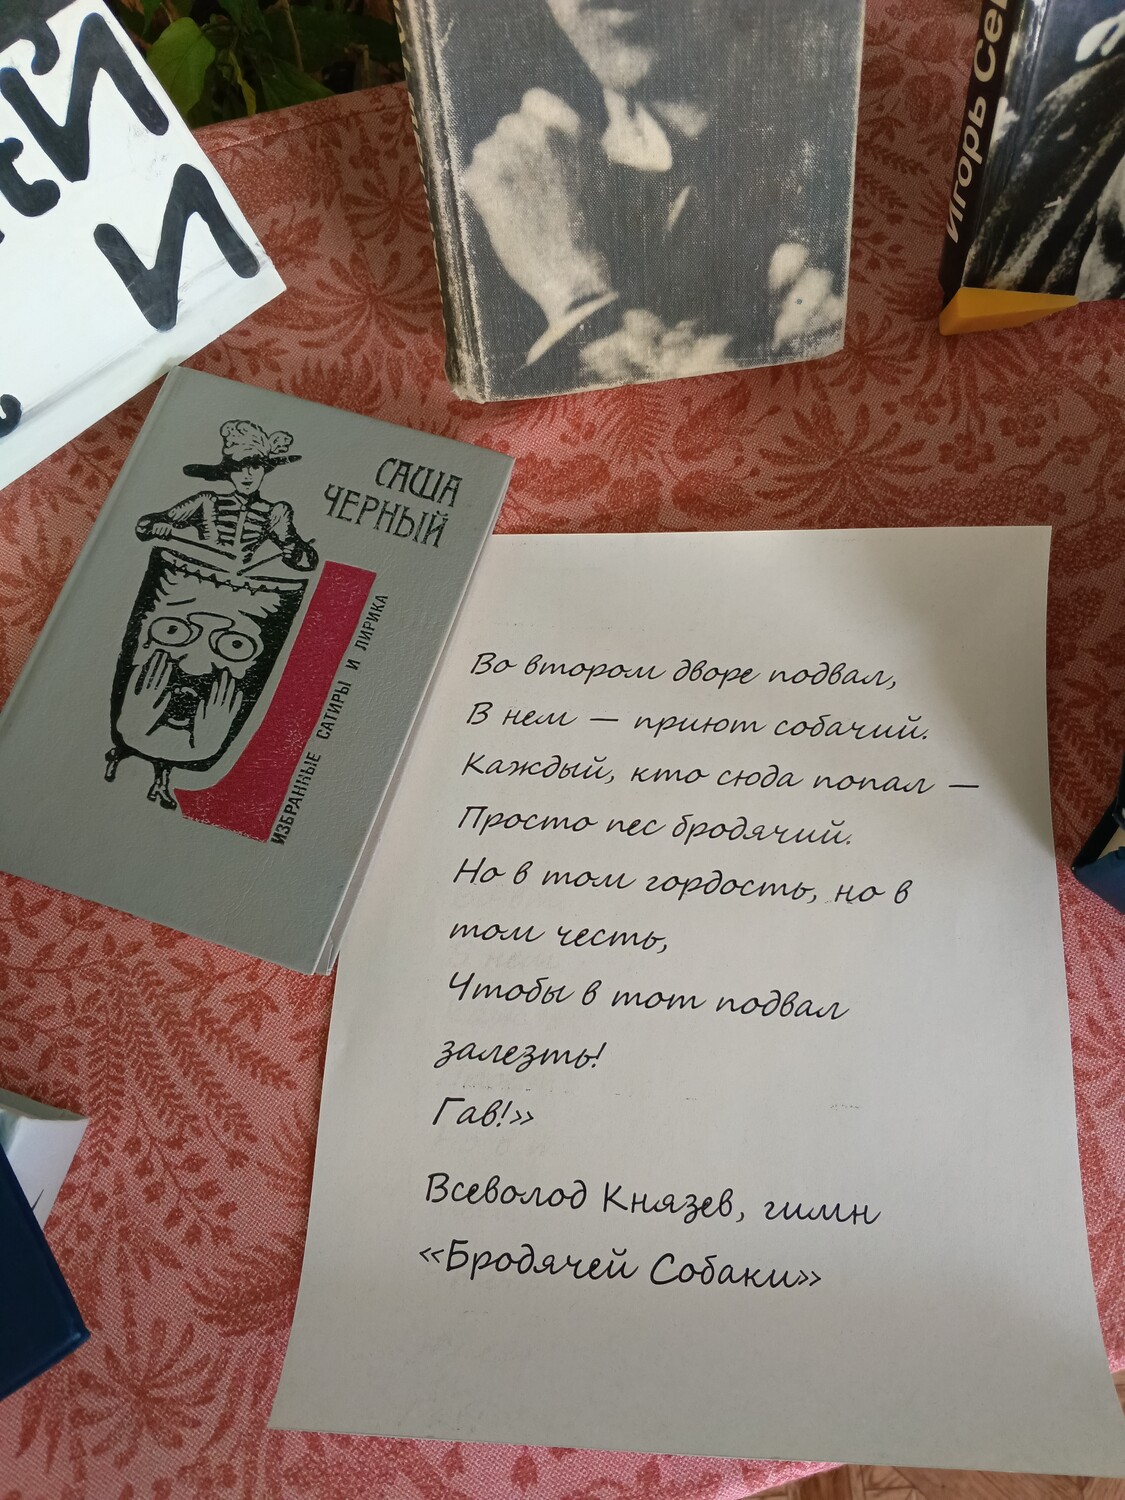 Игорь
САША
ЧЕРНЫЙ
ИЗБРАННЫЕ САТИРЫ И ЛИРИКА
Во втором дворе подвал,
В нем — приют собачий.
Каждый, кто сюда попал —
Просто пес бродячий.
Но в том гордость, но в
том честь,
Чтобы в тот подвал
залезть!
Гав!»
Всеволод Князев, гимн
«Бродячей Собаки»